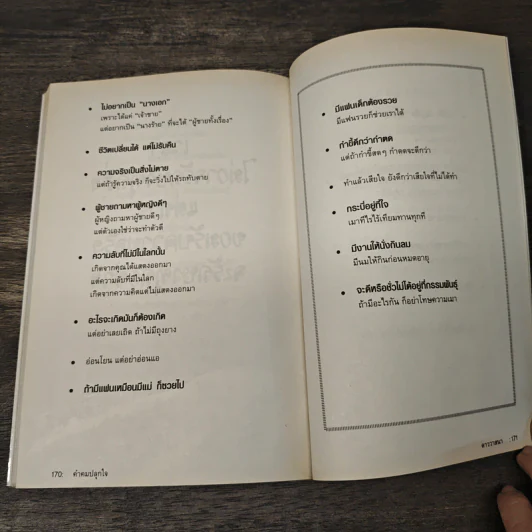 ไม่อยากเป็น "นางเอก"
เพราะได้แค่ "เจ้าชาย"
แต่อยากเป็น "นางร้าย" ที่จะได้ "ผู้ชายทั้งเรื่อง"
ชีวิตเปลี่ยนได้ แต่ไม่รับคืน
ความจริงเป็นสิ่งไม่ตาย
แต่ถ้ารู้ความจริง ก็จะวิ่งไปให้รถทับตาย
ผู้ชายถามหาผู้หญิงดีๆ
ผู้หญิงถามหาผู้ชายดีๆ
แต่ตัวเองใช่ว่าจะทำตัวดี
ความลับที่ไม่มีในโลกนั้น
เกิดจากคุณได้แสดงออกมา
แต่ความลับที่มีในโลก
เกิดจากความคิดแต่ไม่แสดงออกมา
อะไรจะเกิดมันก็ต้องเกิด
แต่อย่าเลยเถิด ถ้าไม่มีถุงยาง
อ่อนโยน แต่อย่าอ่อนแอ
ถ้ามีแฟนเหมือนมีแม่ ก็ซวยไป
170: คำคมปลุกใจ
มีแฟนเด็กต้องรวย
มีแฟนรวยก็ช่วยเราได้
กำขี้ดีกว่ากำตด
แต่ถ้ากำขี้สดๆ กำตดจะดีกว่า
ทำแล้วเสียใจ ยังดีกว่าเสียใจที่ไม่ได้ทำ
กระบี่อยู่ที่ใจ
เมาทีไรไร้เทียมทานทุกที
มีงานให้นั่งกินลม
มีนมให้กินก่อนหมดอายุ
จะดีหรือชั่วไม่ได้อยู่ที่กรรมพันธุ์
ถ้ามีอะไรกัน ก็อย่าโทษความเมา
ดาววาสนา : 171